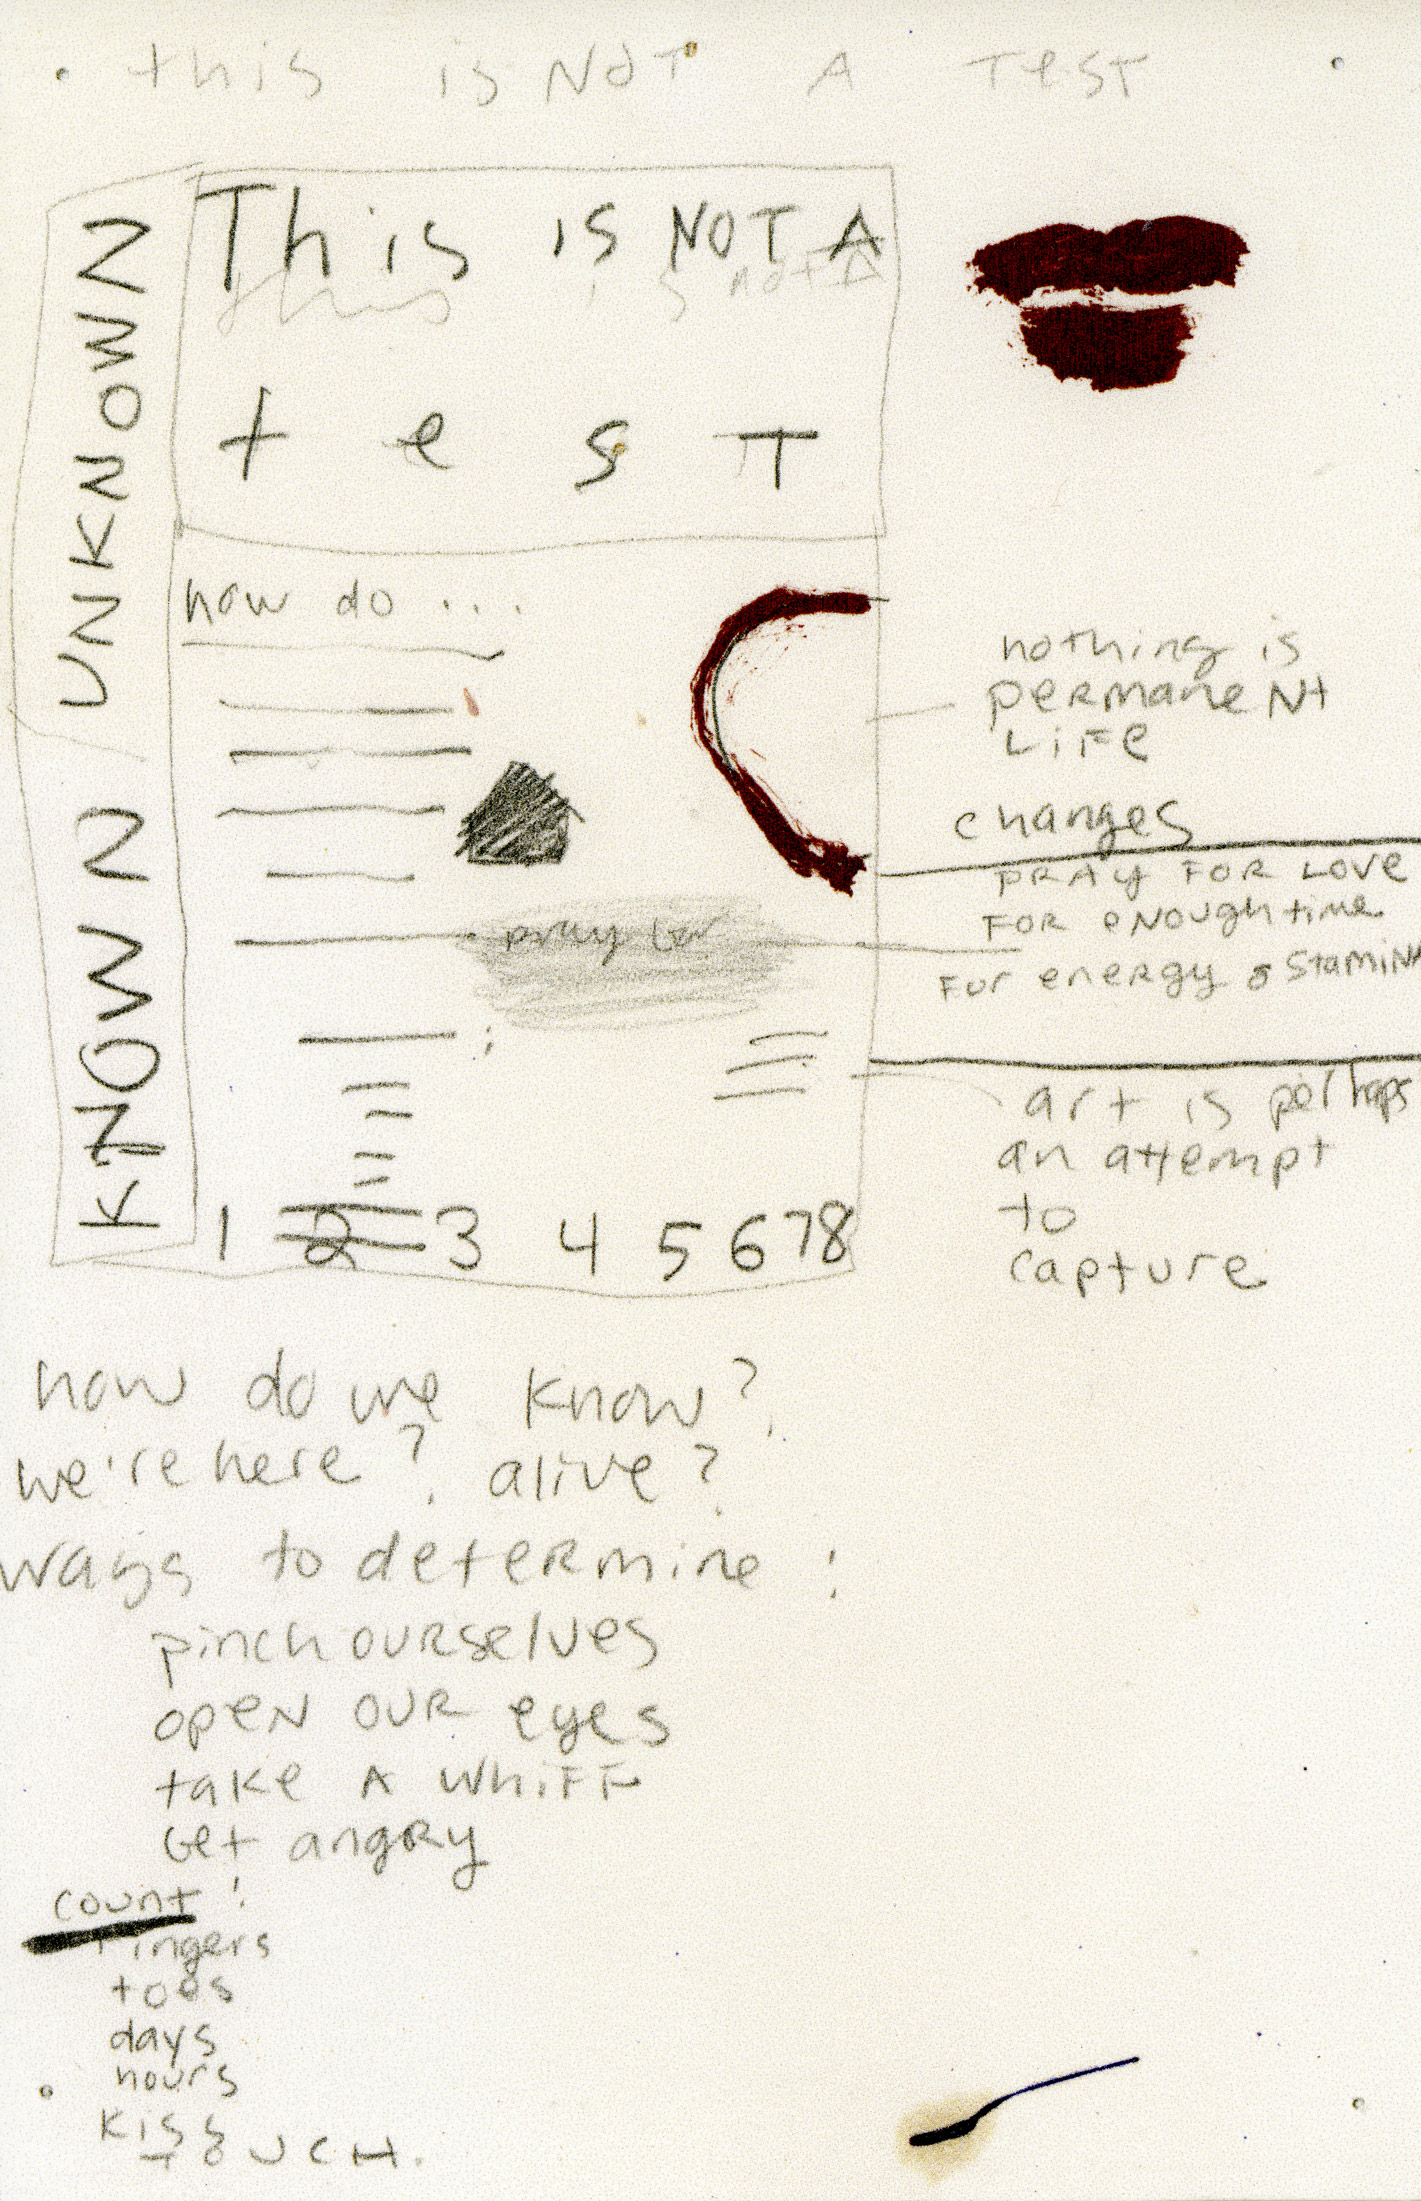 this is NOT A TEST
UNKNOWN
KNOWN
This is NOT A
this is not A
tesT
how do ...
nothing is
permaneNt
LiFe
changes
PRAY FOR LOVE
FOR eNOUgh time
For eneRgy & StamiNA
pray for
art is perhaps
an attempt
to
capture
1 2 3 4 5 6 7 8
how do we know?
we're here? alive?
ways to deteRmine:
pinch ouRselves
opeN OUR eyes
take A WhiFF
Get angRy
count:
Fingers
toes
days
hours
Kiss
TOUCH.